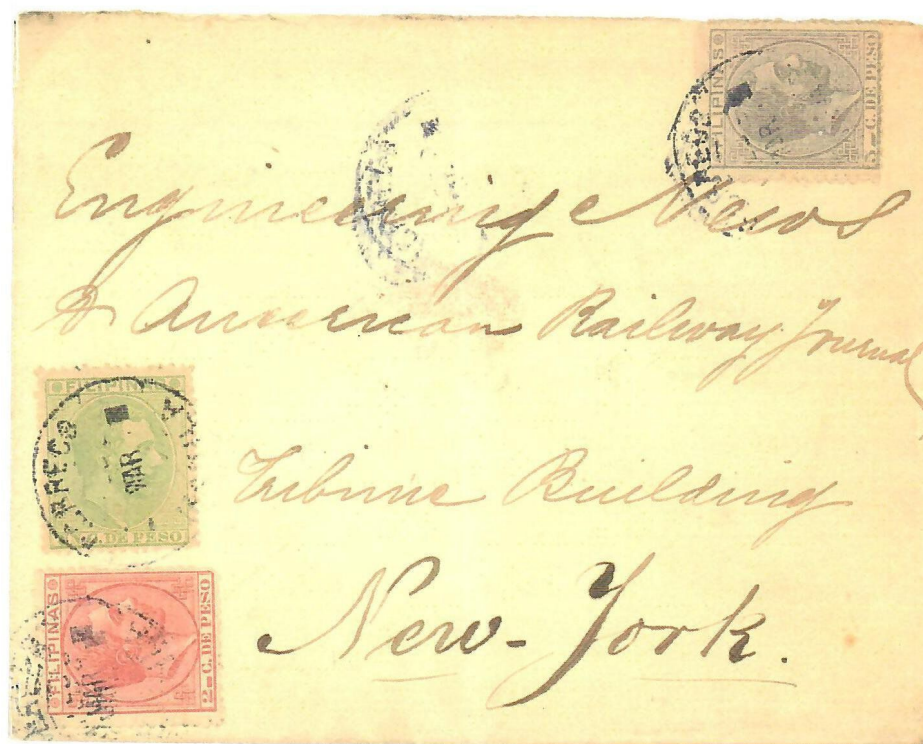 FILIPINAS
5 C. DE PESO
Engineering News
& American Railway Journal
FILIPINAS
CORREOS
MAR
C. DE PESO
Tribune Building
FILIPINAS
2 C. DE PESO
MAR
New-York.